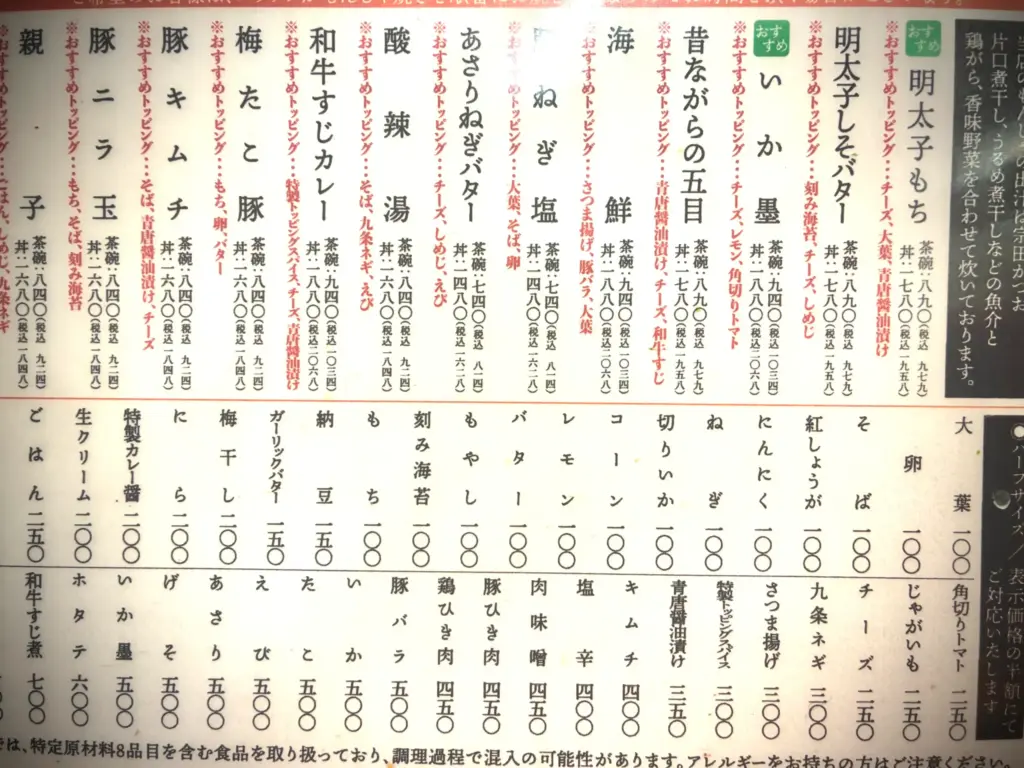 片口煮干し、うるめ煮干しなどの魚介と
鶏がら、香味野菜を合わせて炊いております。
おすすめ
明太子もち
茶碗:八九〇(税込 九七九)
丼:一七八〇(税込一九五八)
※おすすめトッピング…チーズ、大葉、青唐醤油漬け
明太子しそバター
茶碗:八九〇(税込 九七九)
丼:一七八〇(税込一九五八)
※おすすめトッピング…刻み海苔、チーズ、しめじ
おすすめ
いか墨
茶碗:九四〇(税込一〇三四)
丼:一八八〇(税込二〇六八)
※おすすめトッピング…チーズ、レモン、角切りトマト
昔ながらの五目
茶碗:八九〇(税込 九七九)
丼:一七八〇(税込一九五八)
※おすすめトッピング…青唐醤油漬け、チーズ、和牛すじ
海鮮
茶碗:九四〇(税込一〇三四)
丼:一八八〇(税込二〇六八)
※おすすめトッピング…さつま揚げ、豚バラ、大葉
ねぎ塩
茶碗:七四〇(税込 八一四)
丼:一四八〇(税込一六二八)
※おすすめトッピング…大葉、そば、卵
あさりねぎバター
茶碗:七四〇(税込 八一四)
丼:一四八〇(税込一六二八)
※おすすめトッピング…チーズ、しめじ、えび
酸辣湯
茶碗:八四〇(税込 九二四)
丼:一六八〇(税込一八四八)
※おすすめトッピング…そば、九条ネギ、えび
和牛すじカレー
茶碗:九四〇(税込一〇三四)
丼:一八八〇(税込二〇六八)
※おすすめトッピング…特製トッピングスパイス、チーズ、青唐醤油漬け
梅たこ豚
茶碗:八四〇(税込 九二四)
丼:一六八〇(税込一八四八)
※おすすめトッピング…もち、卵、バター
豚キムチ
茶碗:八四〇(税込 九二四)
丼:一六八〇(税込一八四八)
※おすすめトッピング…そば、青唐醤油漬け、チーズ
豚ニラ玉
茶碗:八四〇(税込 九二四)
丼:一六八〇(税込一八四八)
※おすすめトッピング…もち、そば、刻み海苔
親子
茶碗:八四〇(税込 九二四)
丼:一六八〇(税込一八四八)
※おすすめトッピング…ごはん、しめじ、九条ネギ
●ハーフサイズ/表示価格の半額にて
ご対応いたします
大葉 一〇〇
卵 一〇〇
そば 一〇〇
紅しょうが 一〇〇
にんにく 一〇〇
ねぎ 一〇〇
切りいか 一〇〇
コーン 一〇〇
レモン 一〇〇
バター 一〇〇
もやし 一〇〇
刻み海苔 一〇〇
もち 一〇〇
納豆 一五〇
ガーリックバター 一五〇
梅干し 二〇〇
にら 二〇〇
特製カレー醤 二〇〇
生クリーム 二〇〇
ごはん 二五〇
角切りトマト 二五〇
じゃがいも 二五〇
チーズ 二五〇
九条ネギ 三〇〇
さつま揚げ 三〇〇
特製トッピングスパイス 三〇〇
青唐醤油漬け 三五〇
キムチ 四〇〇
塩辛 四〇〇
肉味噌 四五〇
豚ひき肉 四五〇
鶏ひき肉 四五〇
豚バラ 五〇〇
いか 五〇〇
たこ 五〇〇
えび 五〇〇
あさり 五〇〇
げそ 五〇〇
いか墨 五〇〇
ホタテ 六〇〇
和牛すじ煮 七〇〇
では、特定原材料8品目を含む食品を取り扱っており、調理過程で混入の可能性があります。アレルギーをお持ちの方はご注意ください。